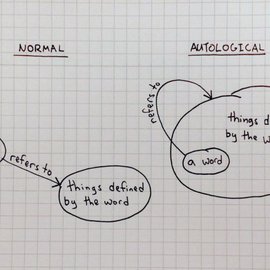 NORMAL
refers to
things defined
by the word
AUTOLOGICAL
refers to
things de
by the w
a word